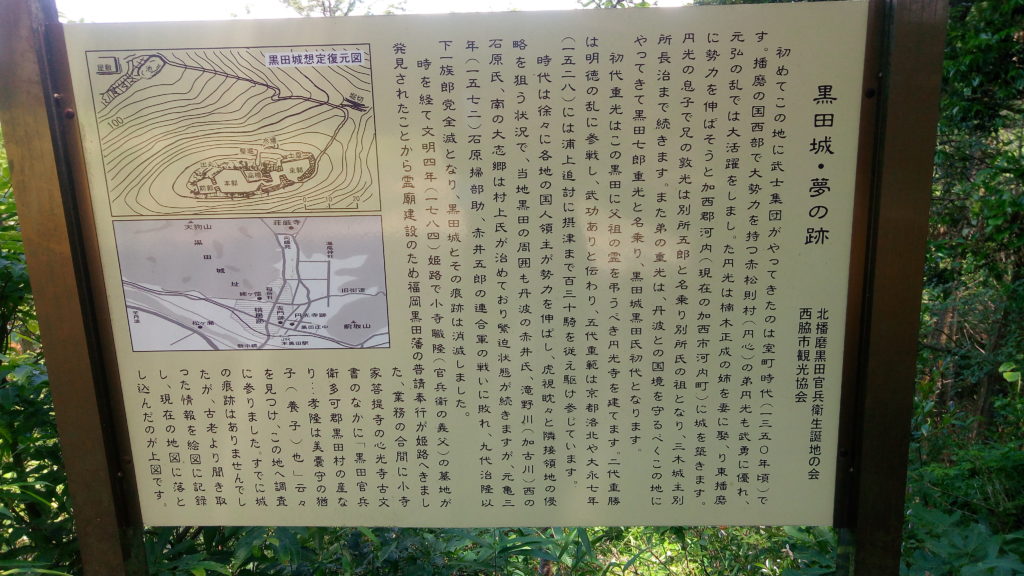 黒田城・夢の跡
北播磨黒田官兵衛生誕地の会
西脇市観光協会
初めてこの地に武士集団がやってきたのは室町時代(一三五〇年頃)で
す。播磨の国西部で大勢力を持つ赤松則村(円心)の弟円光も武勇に優れ、
元弘の乱では大活躍をしました。た円光は楠木正成の姉を妻に娶り東播磨
に勢力を伸ばそうと加西郡河内(現在の加西市河内町)に城を築きます。
円光の息子で兄の敦光は別所五郎と名乗り別所氏の祖となり、三木城主別
所長治まで続きます。また弟の重光は、丹波との国境を守るべくこの地に
やってきて黒田七郎重光と名乗り、黒田城黒田氏初代となります。
初代重光はこの黒田に父祖の霊を弔うべき円光寺を建てます。二代重勝
は明徳の乱に参戦し、武功ありと伝わり、五代重範は京都洛北や大永七年
(一五二八)には浦上追討に摂津まで百三十騎を従え駆け参じています。
時代は徐々に各地の国人領主が勢力を伸ばし、虎視眈々と隣接領地の侵
略を狙う状況で、当地黒田の周囲も丹波の赤井氏、滝野川(加古川)西の
石原氏、南の大志郷は村上氏が治めており緊迫状態が続きますが、元亀三
年(一五七二)石原掃部助、赤井五郎の連合軍の戦いに敗れ、九代治隆以
下一族郎党全滅となり、黒田城とその痕跡は消滅しました。
時を経て文明四年(一七八四)姫路で小寺職隆(官兵衛の義父)の墓地が
発見されたことから霊廟建設のため福岡黒田藩の普請奉行が姫路へきまし
た、業務の合間に小寺
家菩提寺の心光寺古文
書のなかに「黒田官兵
衛多可郡黒田村の産な
り…孝隆は美嚢守の猶
子(養子)也」云々
を見つけ、この地へ調査
に参りました。すでに城
の痕跡はありませんでし
たが、古老より聞き取
った情報を絵図に記録
し、現在の地図に落と
し込んだのが上図です。
黒田城想定復元図
居館
堀切
100
水場
本郭
0 10 20
荘厳寺
天狗山
黒田城址
旧街道
円光寺跡
松ケ瀬
前坂山
JR
本黒田駅